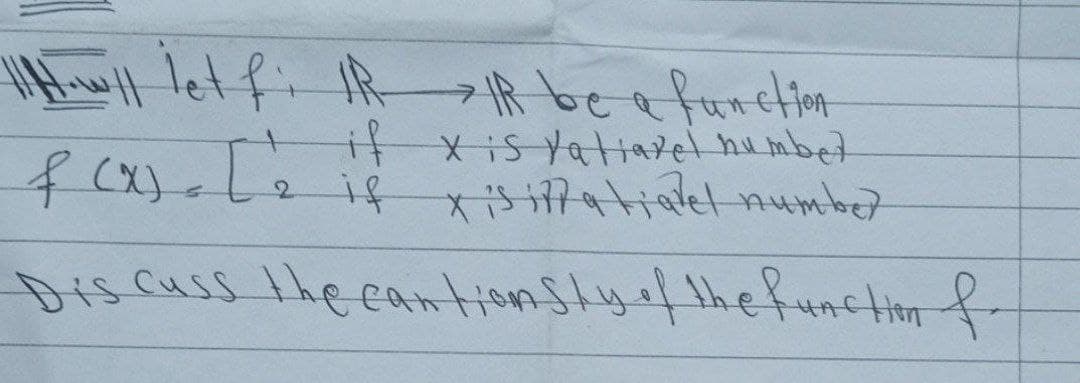 H.w let f: ℝ → ℝ be a function
f(x) = [ 1 if x is ratiarel number
2 if x is irratiarel number
Discuss the cantionsty of the function f.